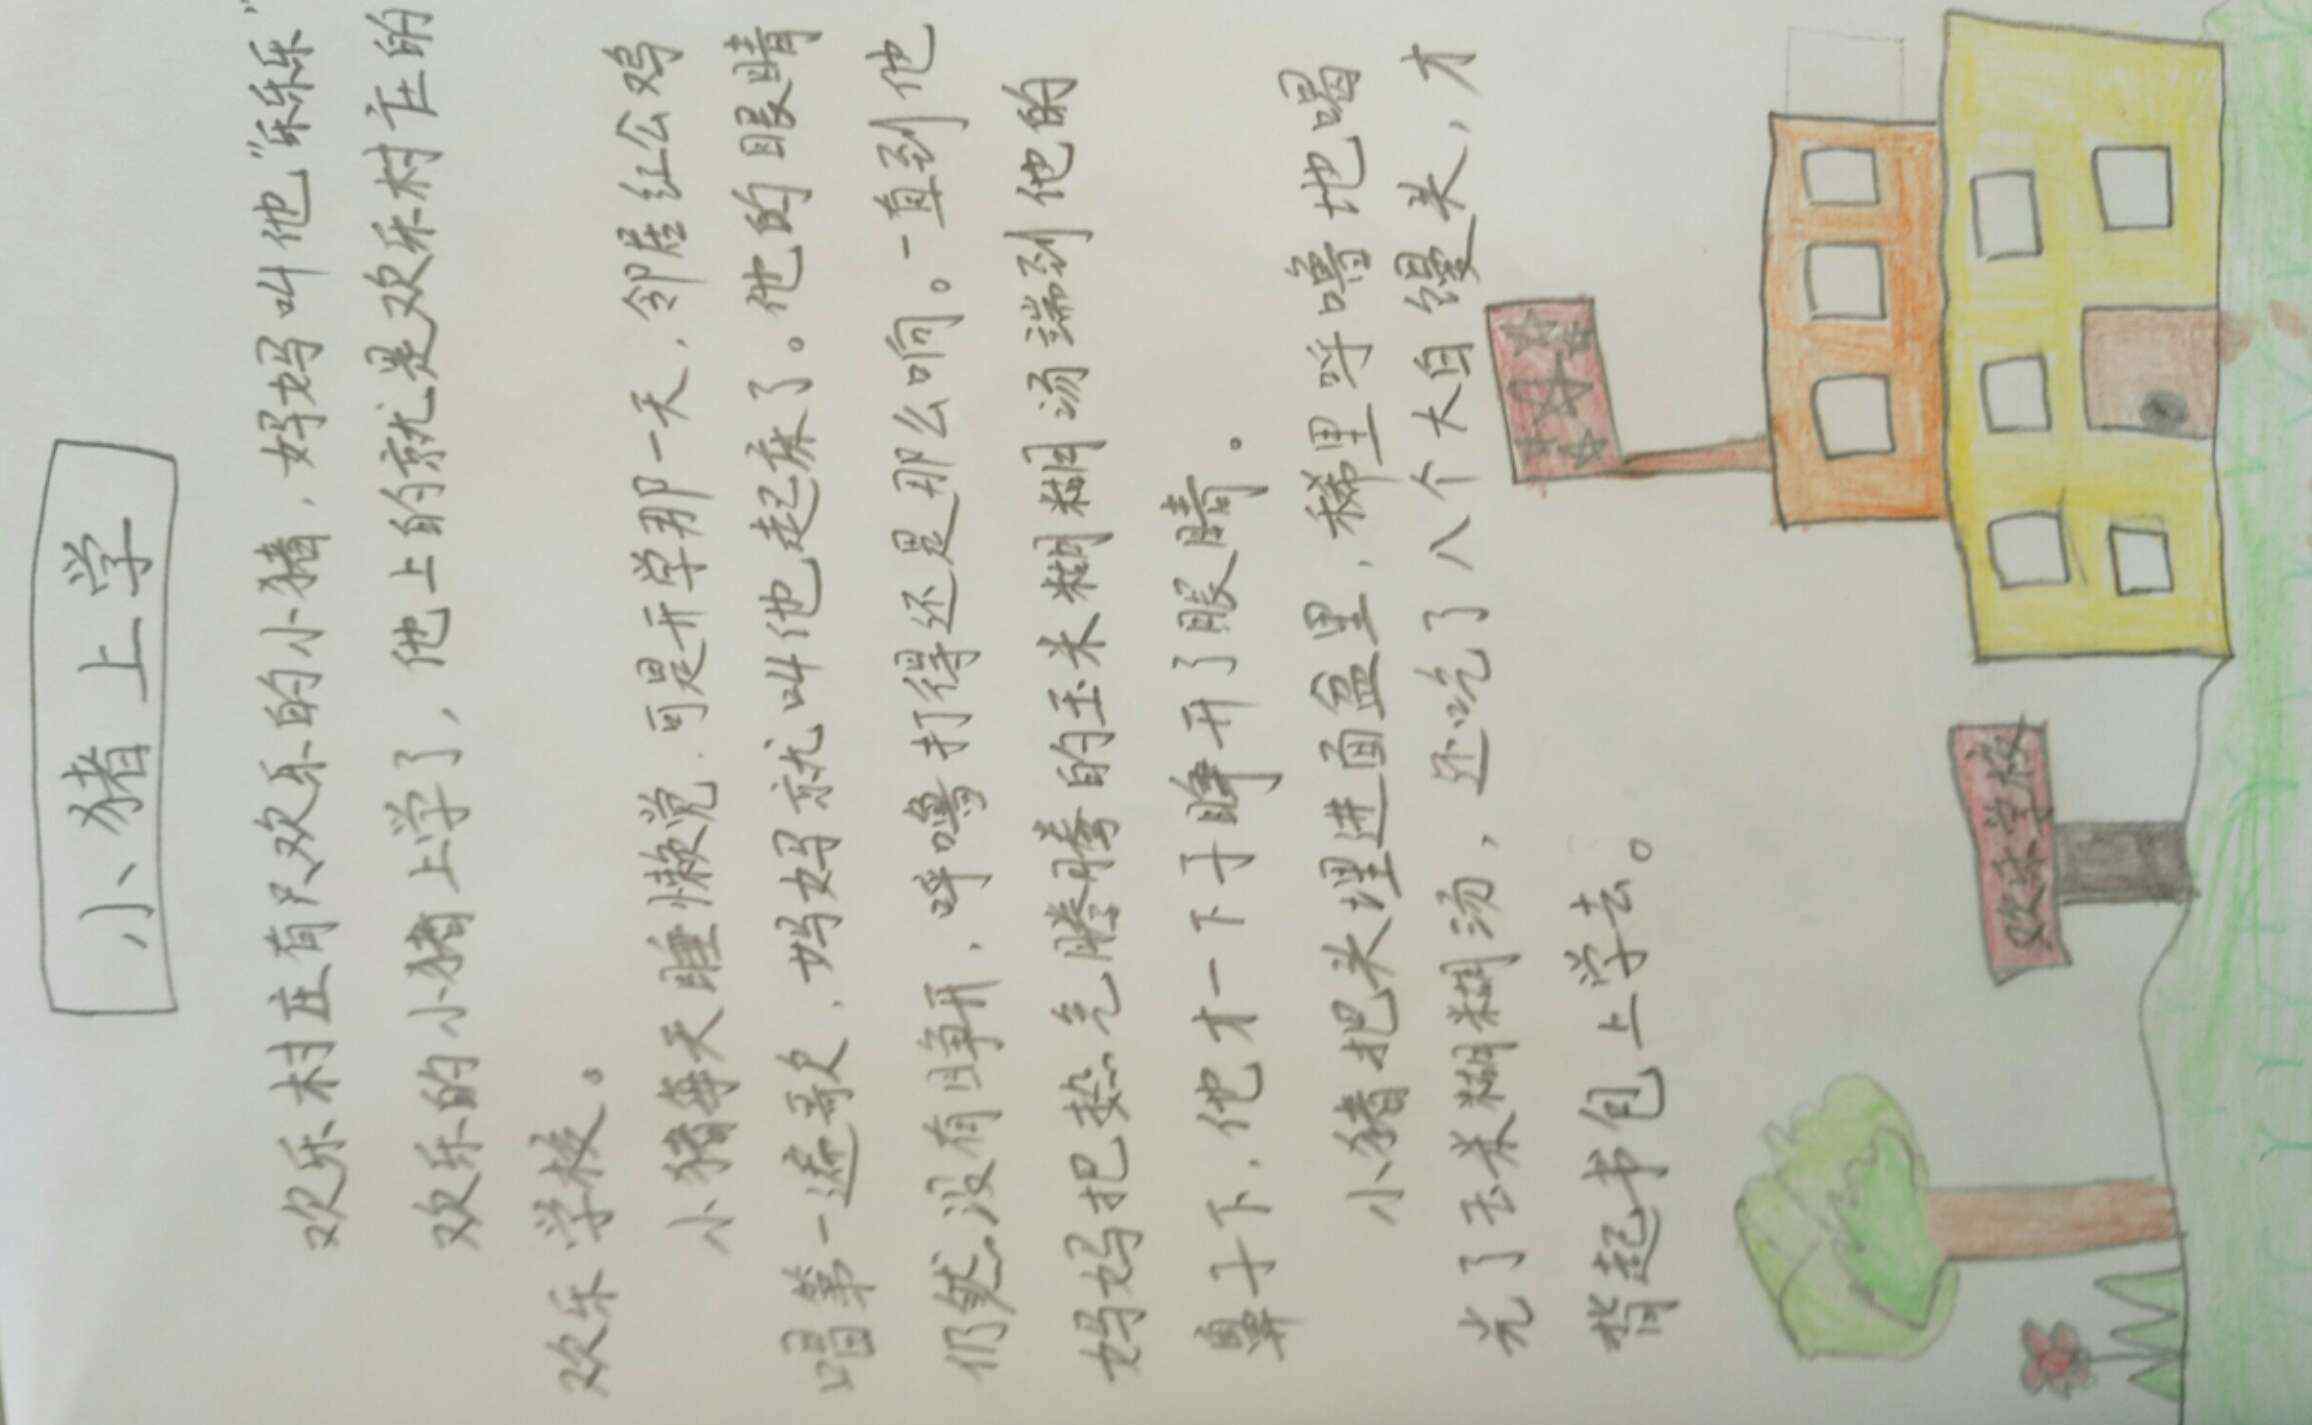 小猪上学
欢乐村庄有只欢乐的小猪，妈妈叫他“乐乐”
欢乐的小猪上学了，他上的就是欢乐村庄的
欢乐学校。
小猪每天睡懒觉，可是开学那一天，邻居红公鸡
唱第一遍歌，妈妈就叫他起床了。他的眼睛
仍然没有睁开，呼噜打得还是那么响。一直到他
妈妈把热气腾腾的玉米糊糊汤端到他的
鼻子下，他才一下子睁开了眼睛。
小猪把头埋进面盆里，稀里呼噜地喝
光了玉米糊糊汤，还吃了八个大白馒头，才
背起书包上学去。
欢乐学校